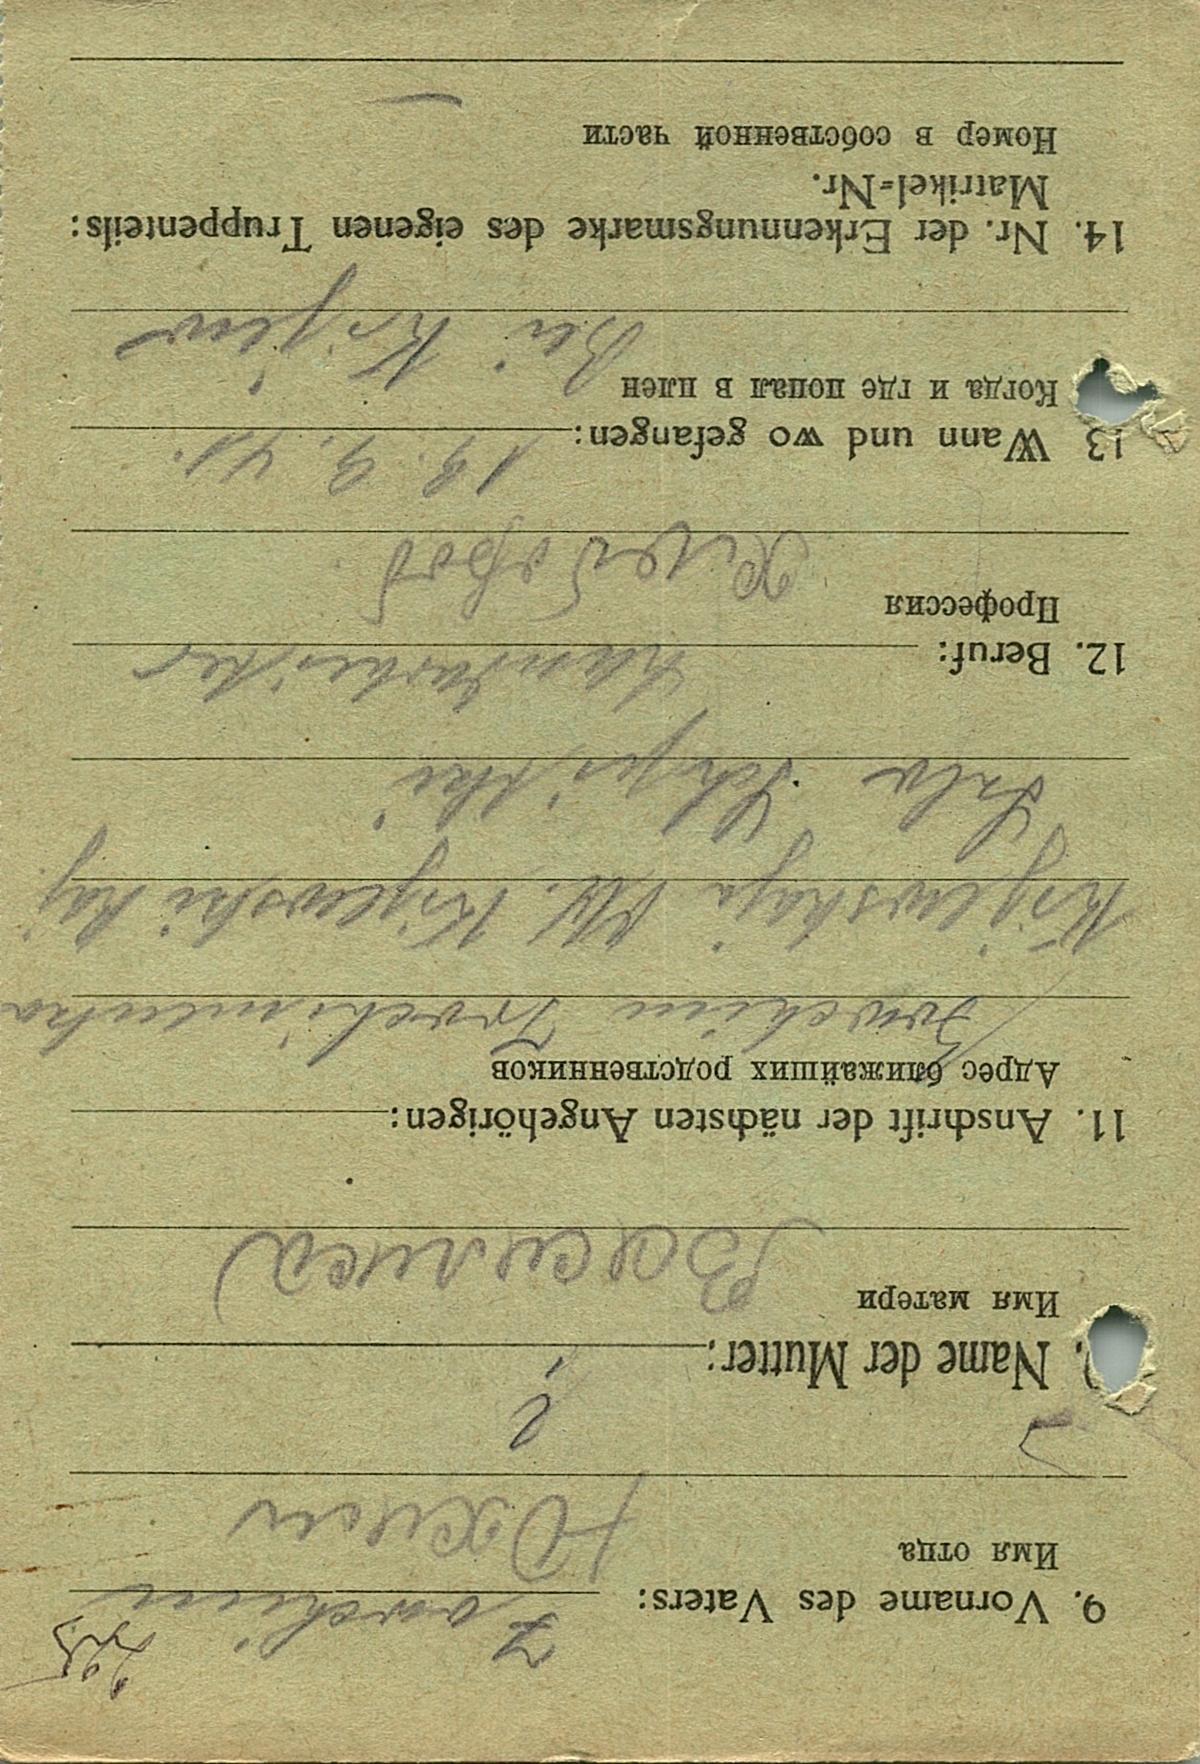 9. Vorname des Vaters:
Имя отца
Юхим
. Name der Mutter:
Имя матери
Василиса
11. Anschrift der nächsten Angehörigen:
Адрес ближайших родственников
Kijewskaja Obl. Kijewski Raj.
12. Beruf: Landarbeiter
Профессия
Хлебороб
13 Wann und wo gefangen: 19. 9. 41.
Когда и где попал в плен
Bei Kijew
14. Nr. der Erkennungsmarke des eigenen Truppenteils:
Matrikel-Nr.
Номер в собственной части
—